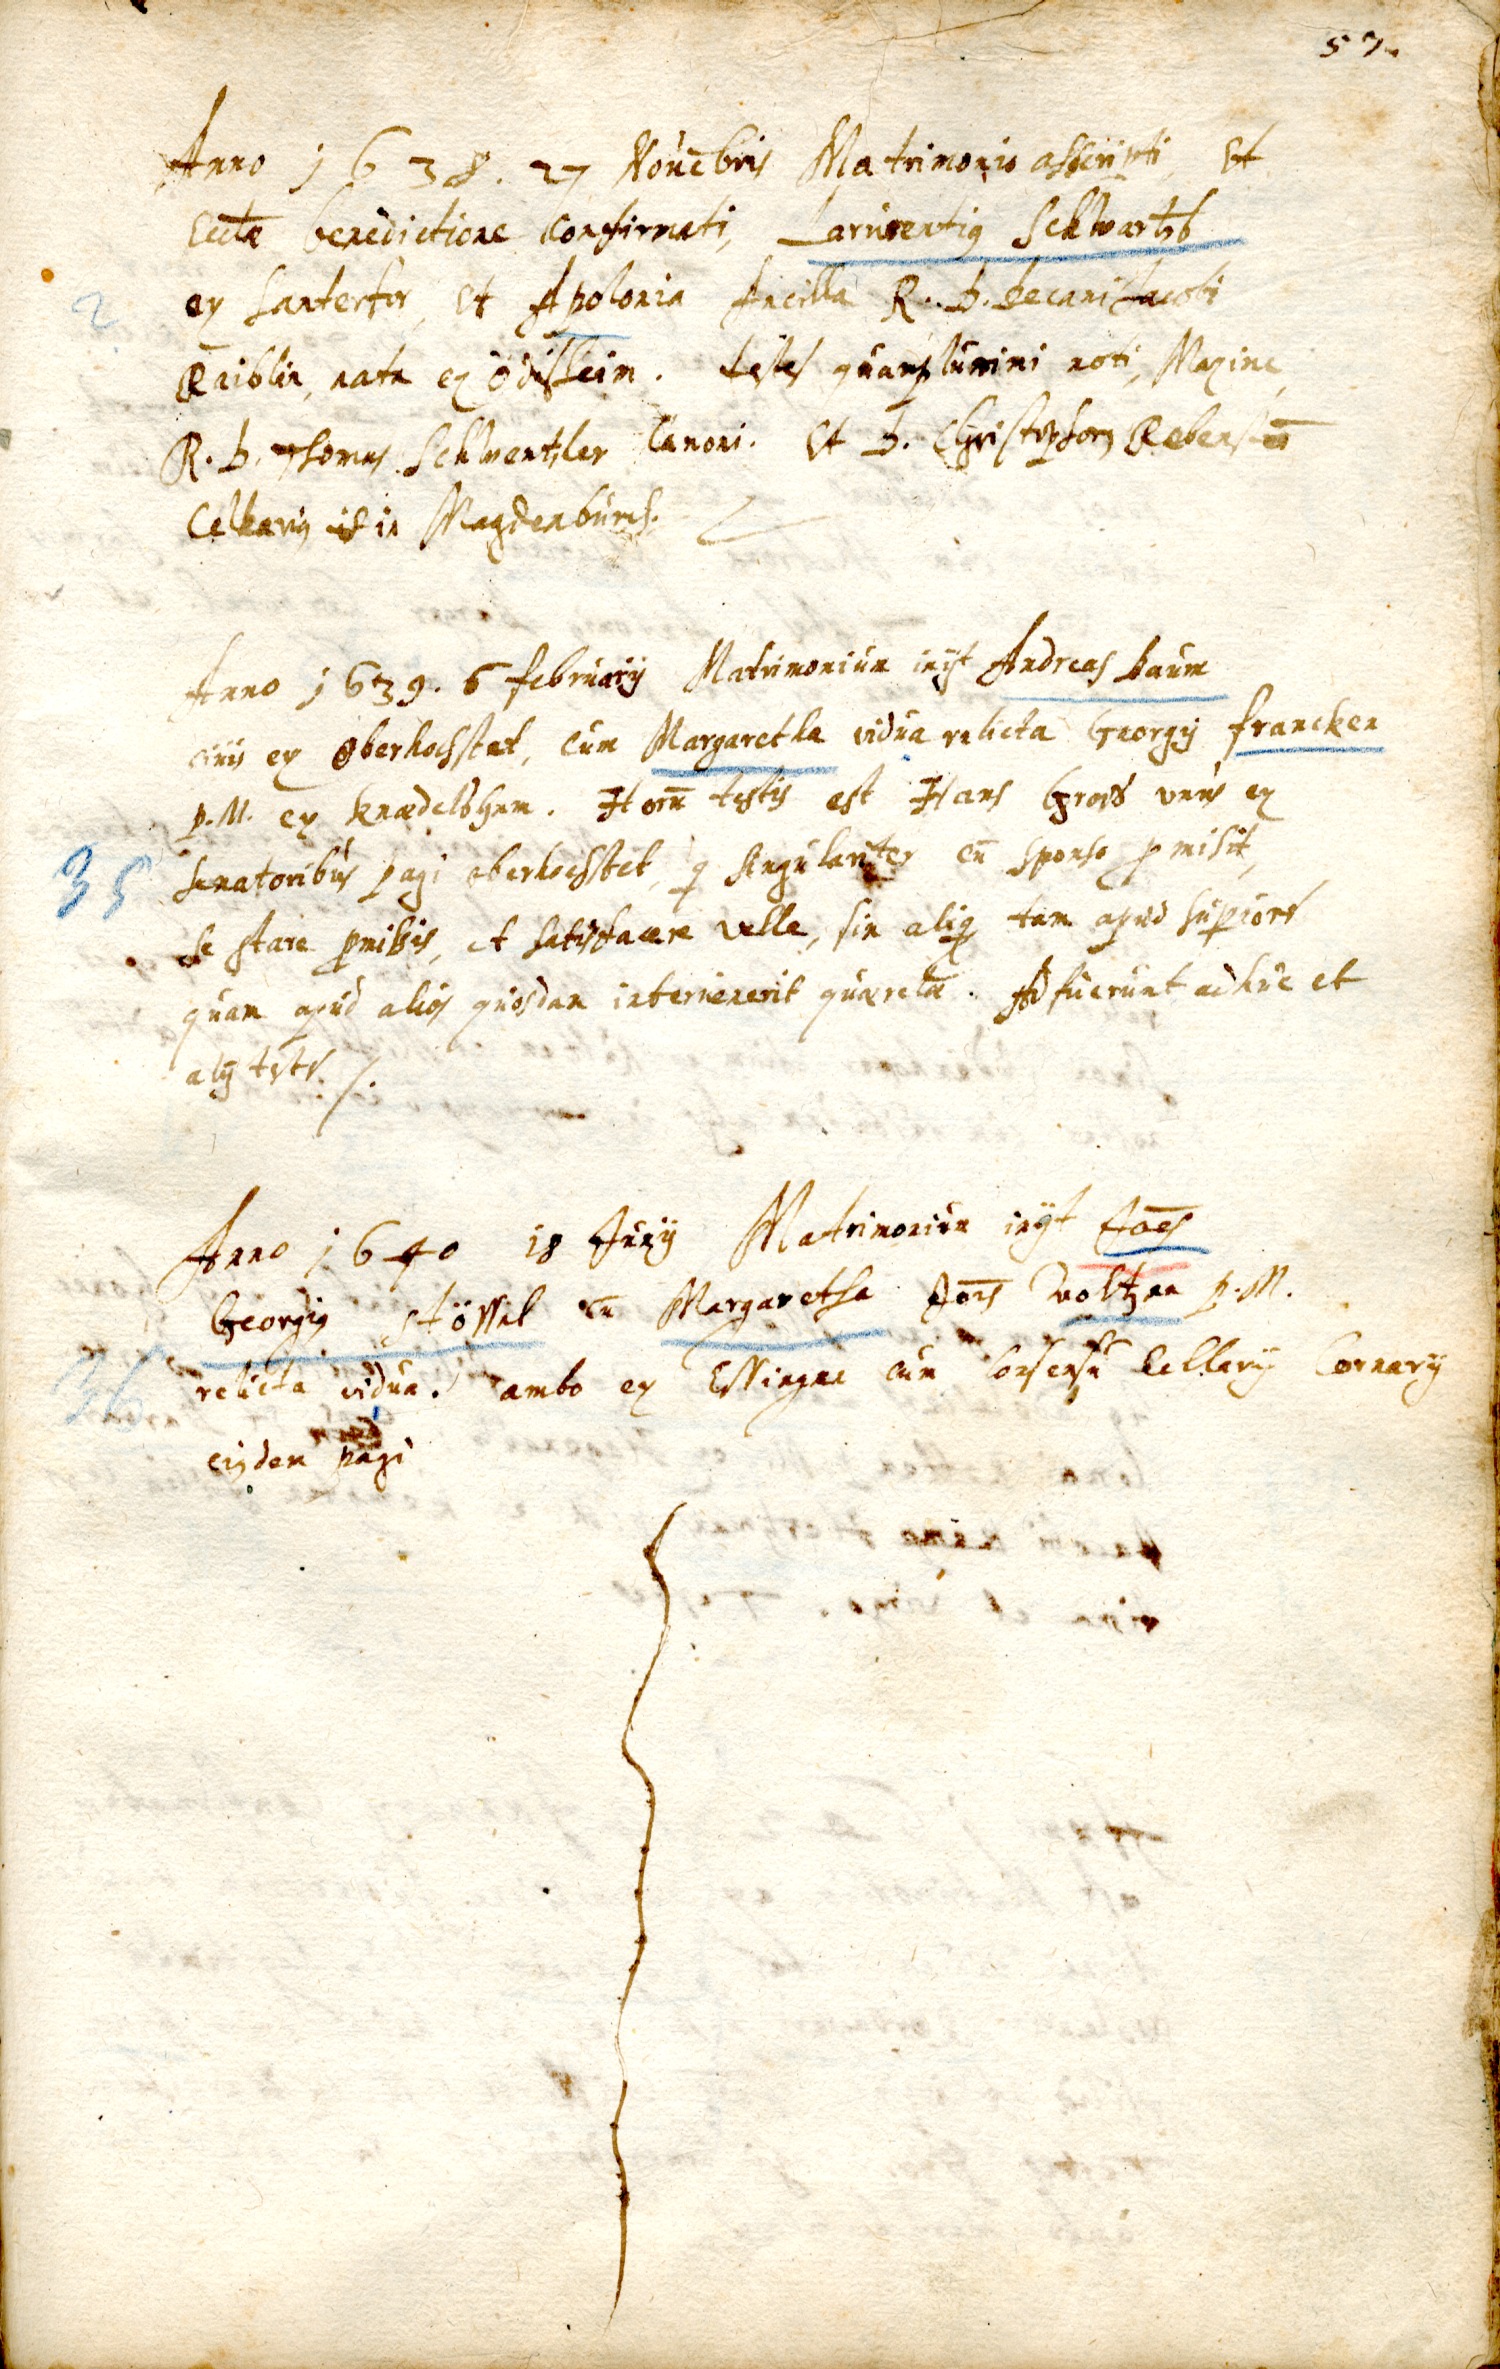 57.
Anno 1638. 27 Nouēbris Matrimonio asscripti, et
Ecclæ benedictione confirmati, Laurentiꝰ Schwartz
ex et Apolonia Ancilla R. D. Decani Jacobi
Raiblin, nata ex Ödisheim. testes quamplurimi noti, Maxime
R. D. Thomas Schwentzler Canoni. Et D. Christophorꝰ
Cellariꝰ in Magdenburch.
2
Anno 1639. 6 februarij Matrimonium inijt Andreas baum
ciuis ex Oberhochstat, cum Margaretha vidua relicta Georgij francken
p. M. ex Knædelshem. Horū testis est Hans Gross unus ex
Senatoribus pagi oberhochstet, q singulariter cū sponso pmisit,
35
se stare pmissis, et satisfacere velle, sin aliq tam apud supiores
quam apud alios quosdam interuenerit quærela. Adfuerunt adhuc et
alij testes /.
Anno 1640 18 Junij Matrimonium inijt Joēs
Georgiꝰ Stössel cū Margaretha Joīs Woltzen p. M.
36
relicta vidua. ambo ex Essingen cum Consensu Cellarij
eiꝰdem pagi